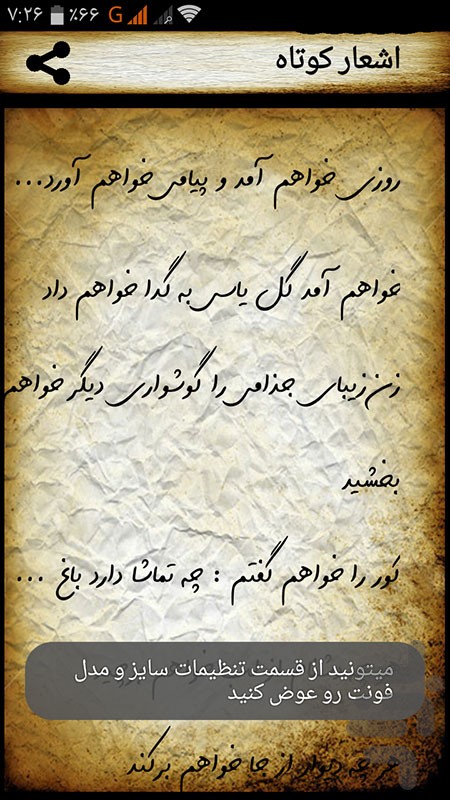 ۷:۲۶ ٪۶۶ G
اشعار کوتاه
روزی خواهم آمد و پیامی خواهم آورد...
خواهم آمد گل یاس به گدا خواهم داد
زن زیبای جذامی را گوشواری دیگر خواهم
بخشید
کور را خواهم گفتم : چه تماشا دارد باغ ...
میتونید از قسمت تنظیمات سایز و مدل
فونت رو عوض کنید
هر چه دیوار از جا خواهم برکند